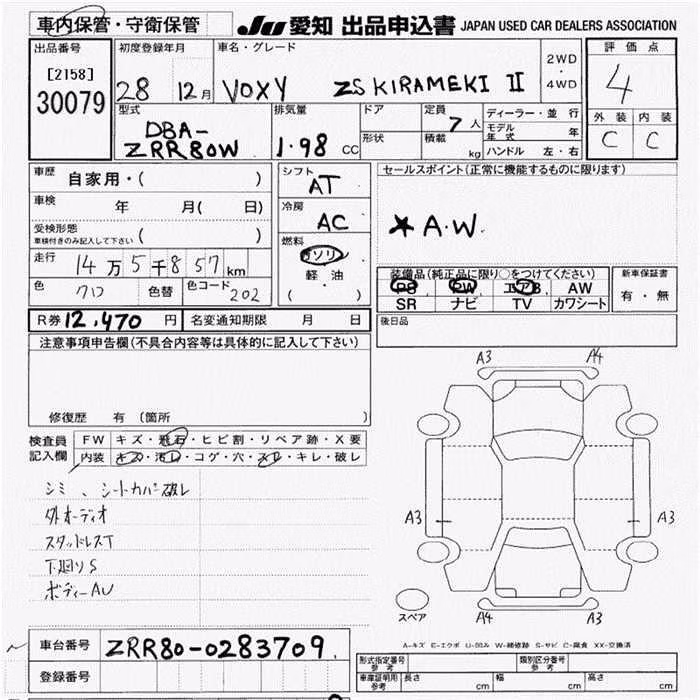 車内保管・守衛保管 JU 愛知 出品申込書 JAPAN USED CAR DEALERS ASSOCIATION
出品番号 初度登録年月 車名・グレード 2WD・4WD 評価点
[2158] 28 12月 VOXY ZS KIRAMEKI II 4
30079 型式 排気量 ドア 定員 7人 ディーラー・並行 外装 内装
DBA-ZRR80W 1.98 CC 形状 積載 kg モデル年式 年 C C
ハンドル 左・右
車歴 自家用・( ) シフト AT セールスポイント(正常に機能するものに限ります)
車検 年 月( 日) 冷房 AC ★A.W.
受検形態 ( )
車検付きのみ記入して下さい
燃料 ガソリン
走行 14万5千857km 軽・油
( )
色 クロ 色替 色コード 202
装備品(純正品に限り○をつけてください) 新車保証書
PS PW エアB AW 有・無
SR ナビ TV カワシート
R券 12,470 円 名変通知期限 月 日 後日品
注意事項申告欄(不具合内容等は具体的に記入して下さい)
修復歴 有 (箇所
検査員記入欄 FW キズ・飛石・ヒビ割・リペア跡・X要
内装 キズ・汚れ・コゲ・穴・スレ・キレ・破レ
シミ、シートカバー破レ
外オーディオ
スタッドレスT
下廻りS
ボディーAU
A3 A4
A3 A3
スペア A4 A3
A-キズ E-エクボ U-凹み W-補修跡 S-サビ C-腐食 XX-交換済
車台番号 ZRR80-0283709
登録番号
形式指定番号 参考 類別区分番号 参考
車庫証明用 参考 長さ cm 幅 cm 高さ cm